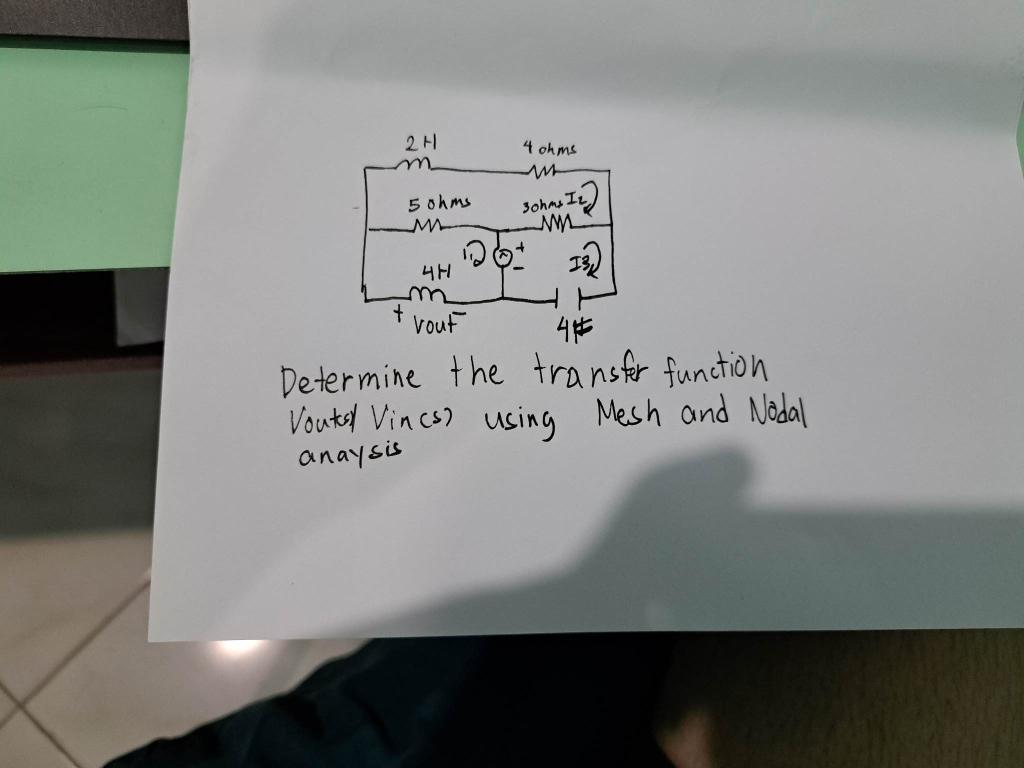 2H 4 ohms
5 ohms 3ohms I2
I1 + - I3
4H
+ Vout -
Determine the transfer function
Vin(s) using Mesh and Nodal
anaysis